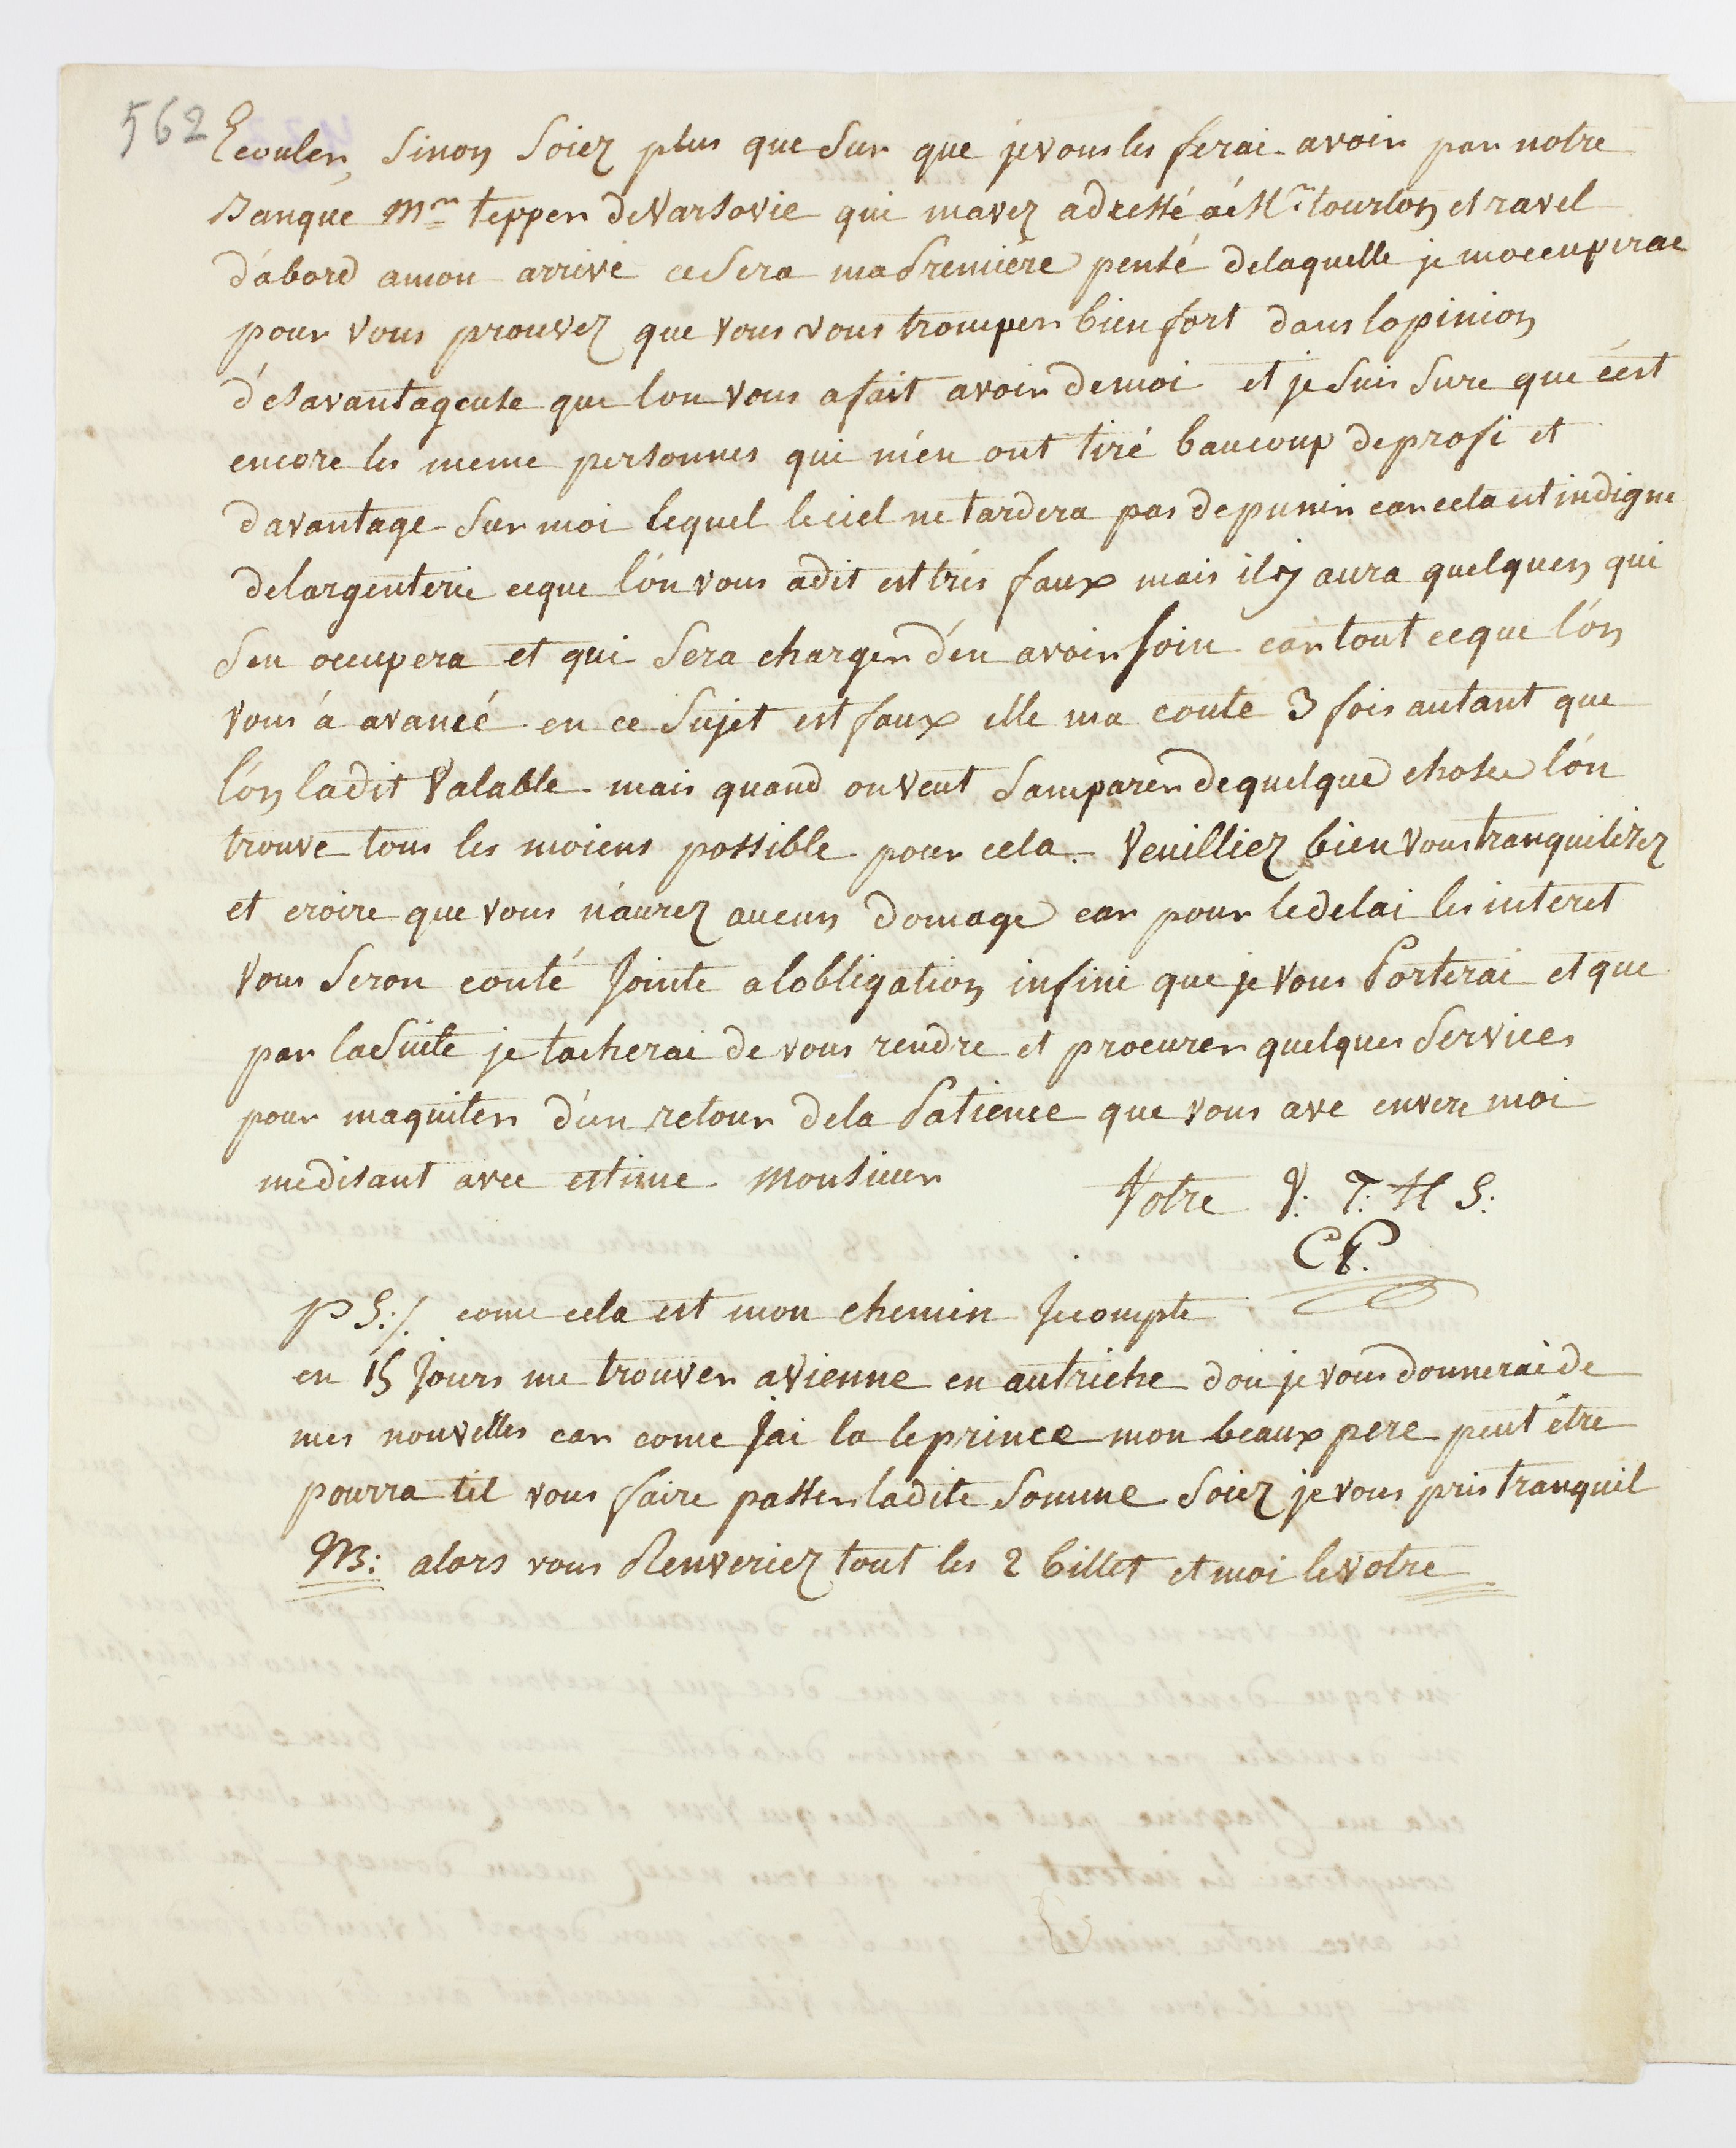 562
Ecouler, sinon soiez plus que sur que je vous les ferai avoir par notre
Banque Mr tepper de Varsovie qui mavez adressé a Mrs tourton et ravel
d'abord a mon arrivé ce sera ma Premiére pensé de laquelle je moccuperai
pour vous prouvez que vous vous tromper bien fort dans lopinion
d'esavantageuse que lon vous a fait avoir de moi et je suis sure que c'est
encore les meme personnes qui m'en ont tiré baucoup de profi et
davantage sur moi lequel le ciel ne tardera pas de punir car cela est indigne
de largenterie ce que l'on vous a dit est trés faux mais il y aura quelquen qui
sen occupera et qui sera charger d'en avoir soin car tout ce que l'on
vous á avancé en ce sujet est faux elle ma couté 3 fois autant que
l'on la dit valable. mais quand on veut samparer de quelque chose l'on
trouve tous les moiens possible pour cela. Veuilliez bien vous tranquilisez
et croire que vous n'aurez aucun domage car pour le delai les interet
vous seron conté Jointe a lobligation infini que je vous Porterai et que
par la suite je tacherai de vous rendre et procurer quelques services
pour maquiter d'un retour de la Patience que vous ave envere moi
me disant avec estime Monsieur
Votre V: T: H S:
C P.
PS:/. come cela est mon chemin Je compte
en 15 Jours me trouver a Vienne en autriche dou je vous donnerai de
mes nouvelles car come Jai la le prince mon beaux pere peut étre
pourra til vous faire passer ladite somme soiez je vous pris tranquil
NB: alors vous Renveriez tout les 2 billet et moi le votre